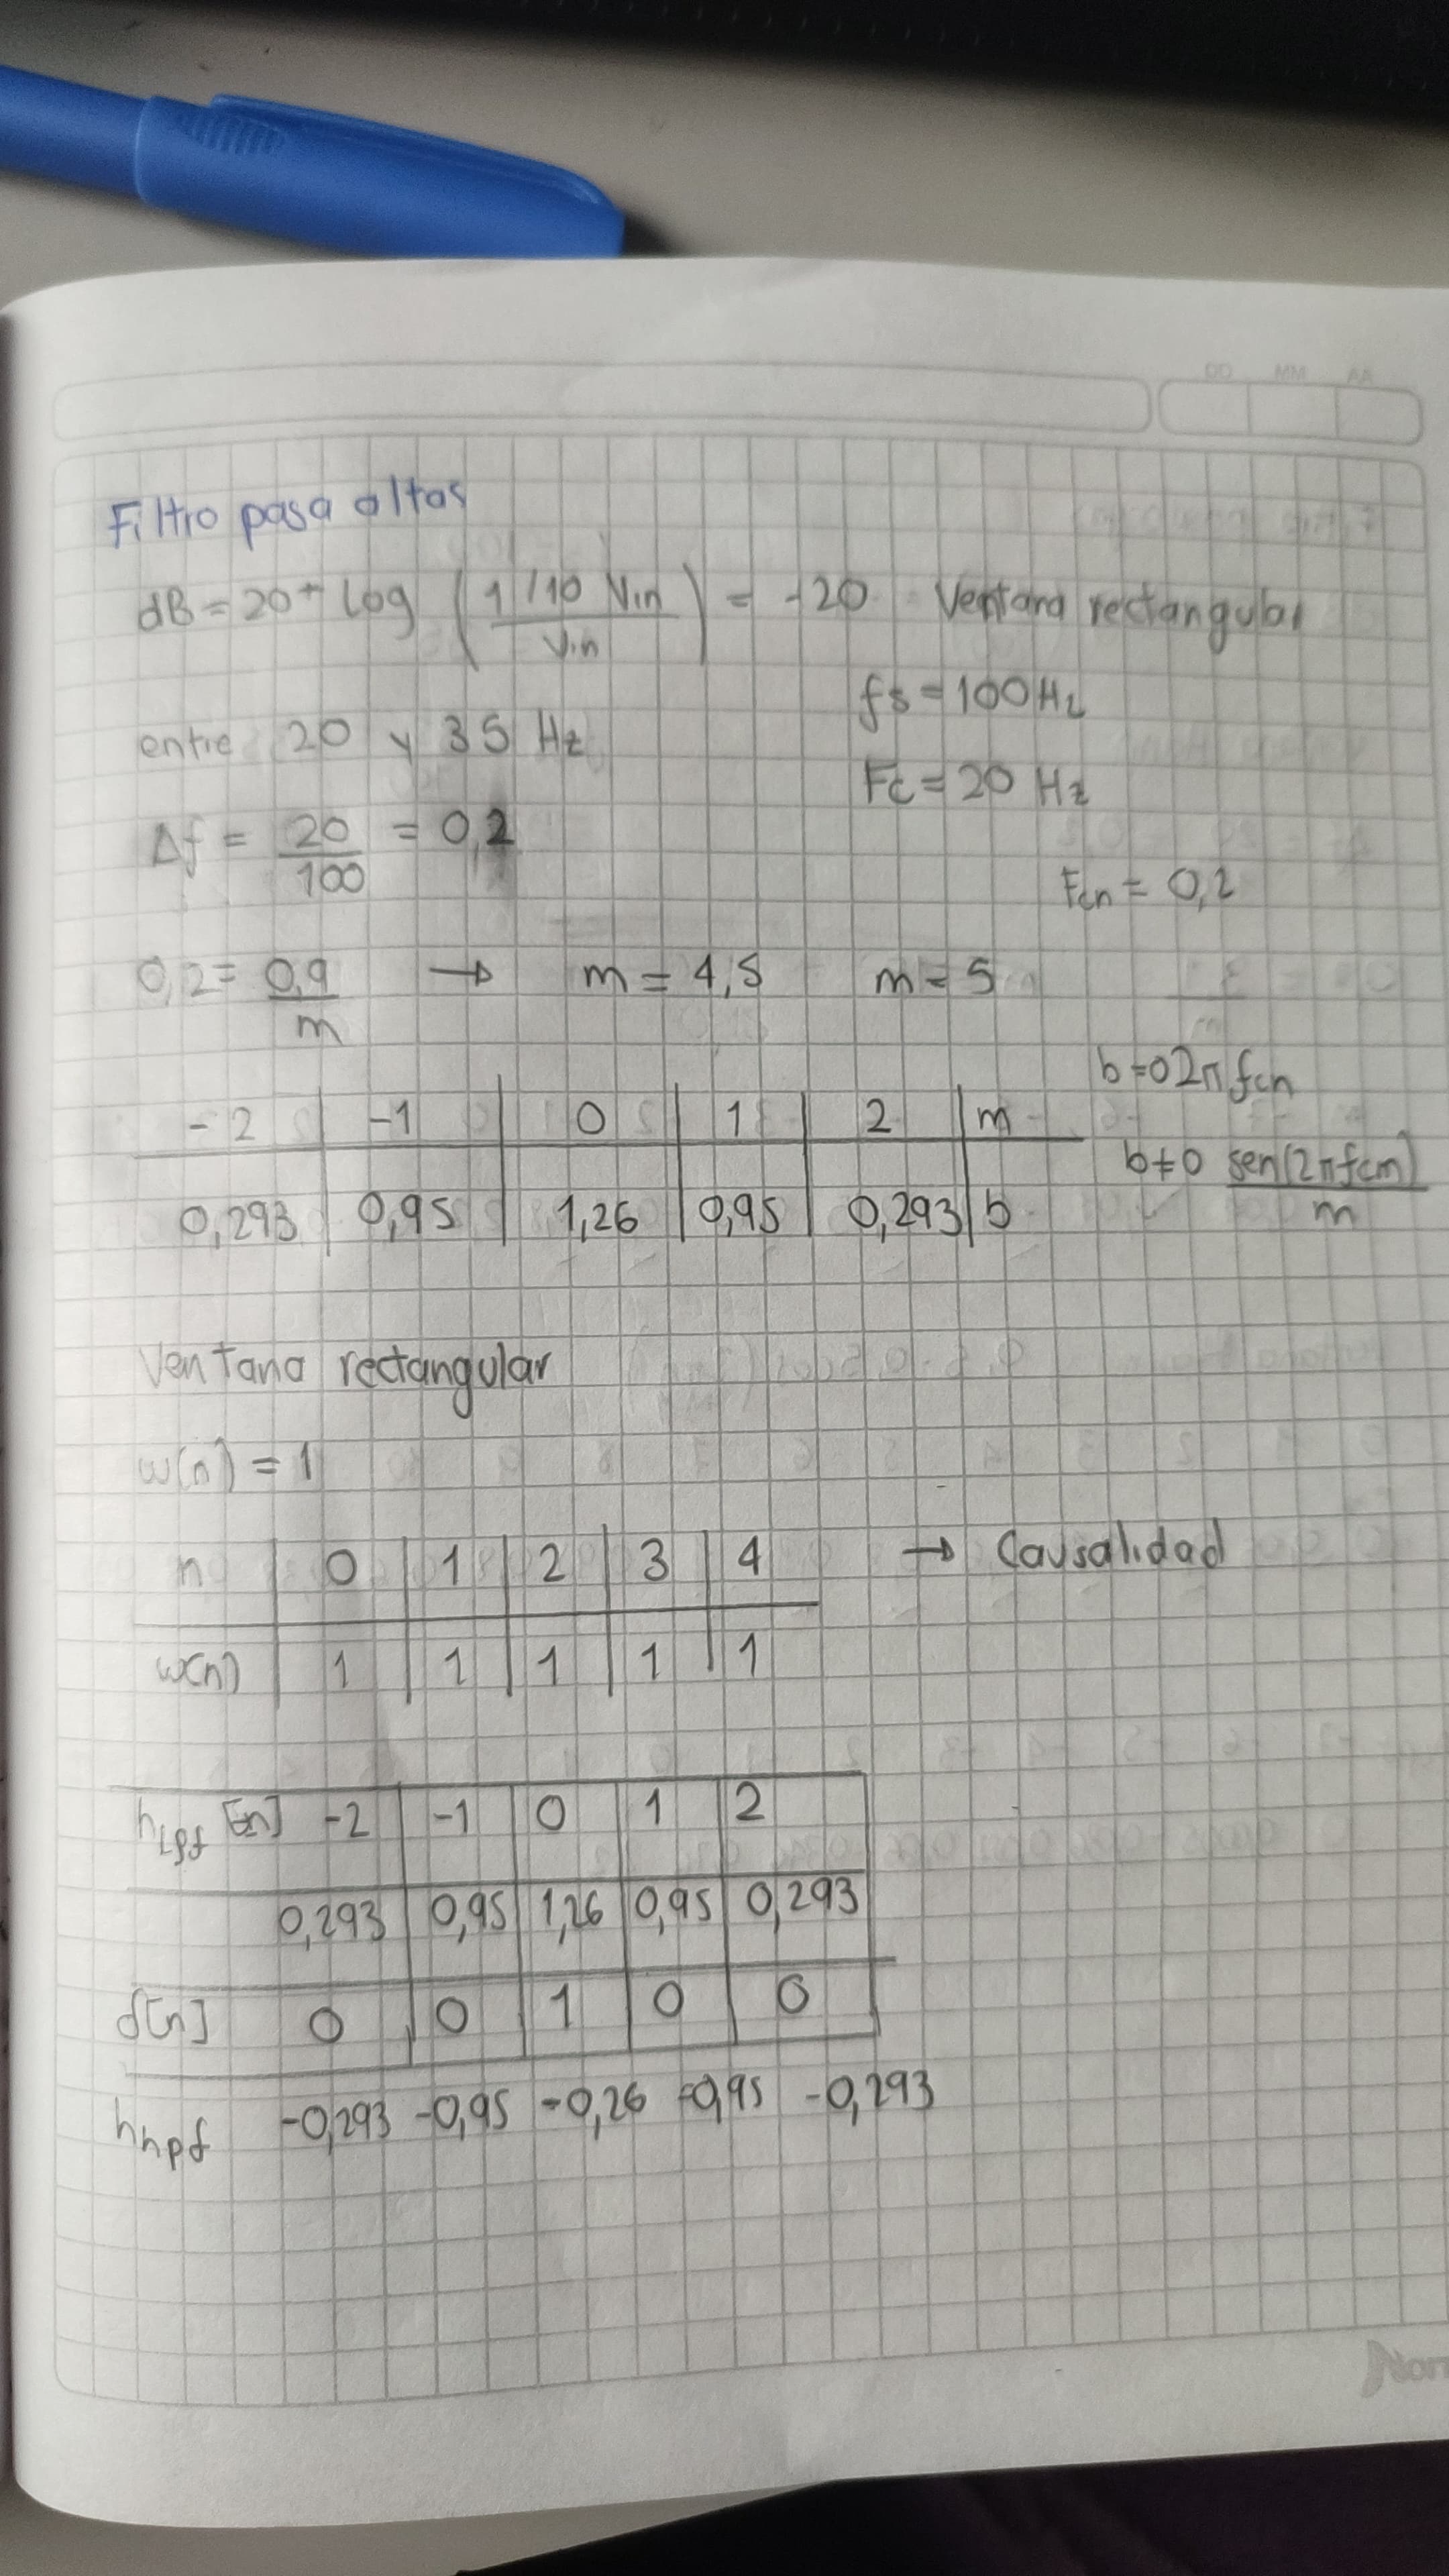 DD MM AA
Filtro pasa altas
dB = 20 * Log (1/10 Vin / Vin) = -20 Ventana rectangular
fs = 100 Hz
entre 20 y 35 Hz
Fc = 20 Hz
Δf = 20/100 = 0,2
Fcn = 0,2
0,2 = 0,9/m → m = 4,5 m = 5
b=0 2π fcn
-2 | -1 | 0 | 1 | 2 | m
b≠0 sen(2πfcm)/m
0,293 | 0,95 | 1,26 | 0,95 | 0,293 | b
Ventana rectangular
w(n) = 1
n | 0 | 1 | 2 | 3 | 4 → Causalidad
w(n) | 1 | 1 | 1 | 1 | 1
hLpf [n] -2 | -1 | 0 | 1 | 2
0,293 | 0,95 | 1,26 | 0,95 | 0,293
δ[n] 0 | 0 | 1 | 0 | 0
hhpf -0,293 -0,95 -0,26 -0,95 -0,293